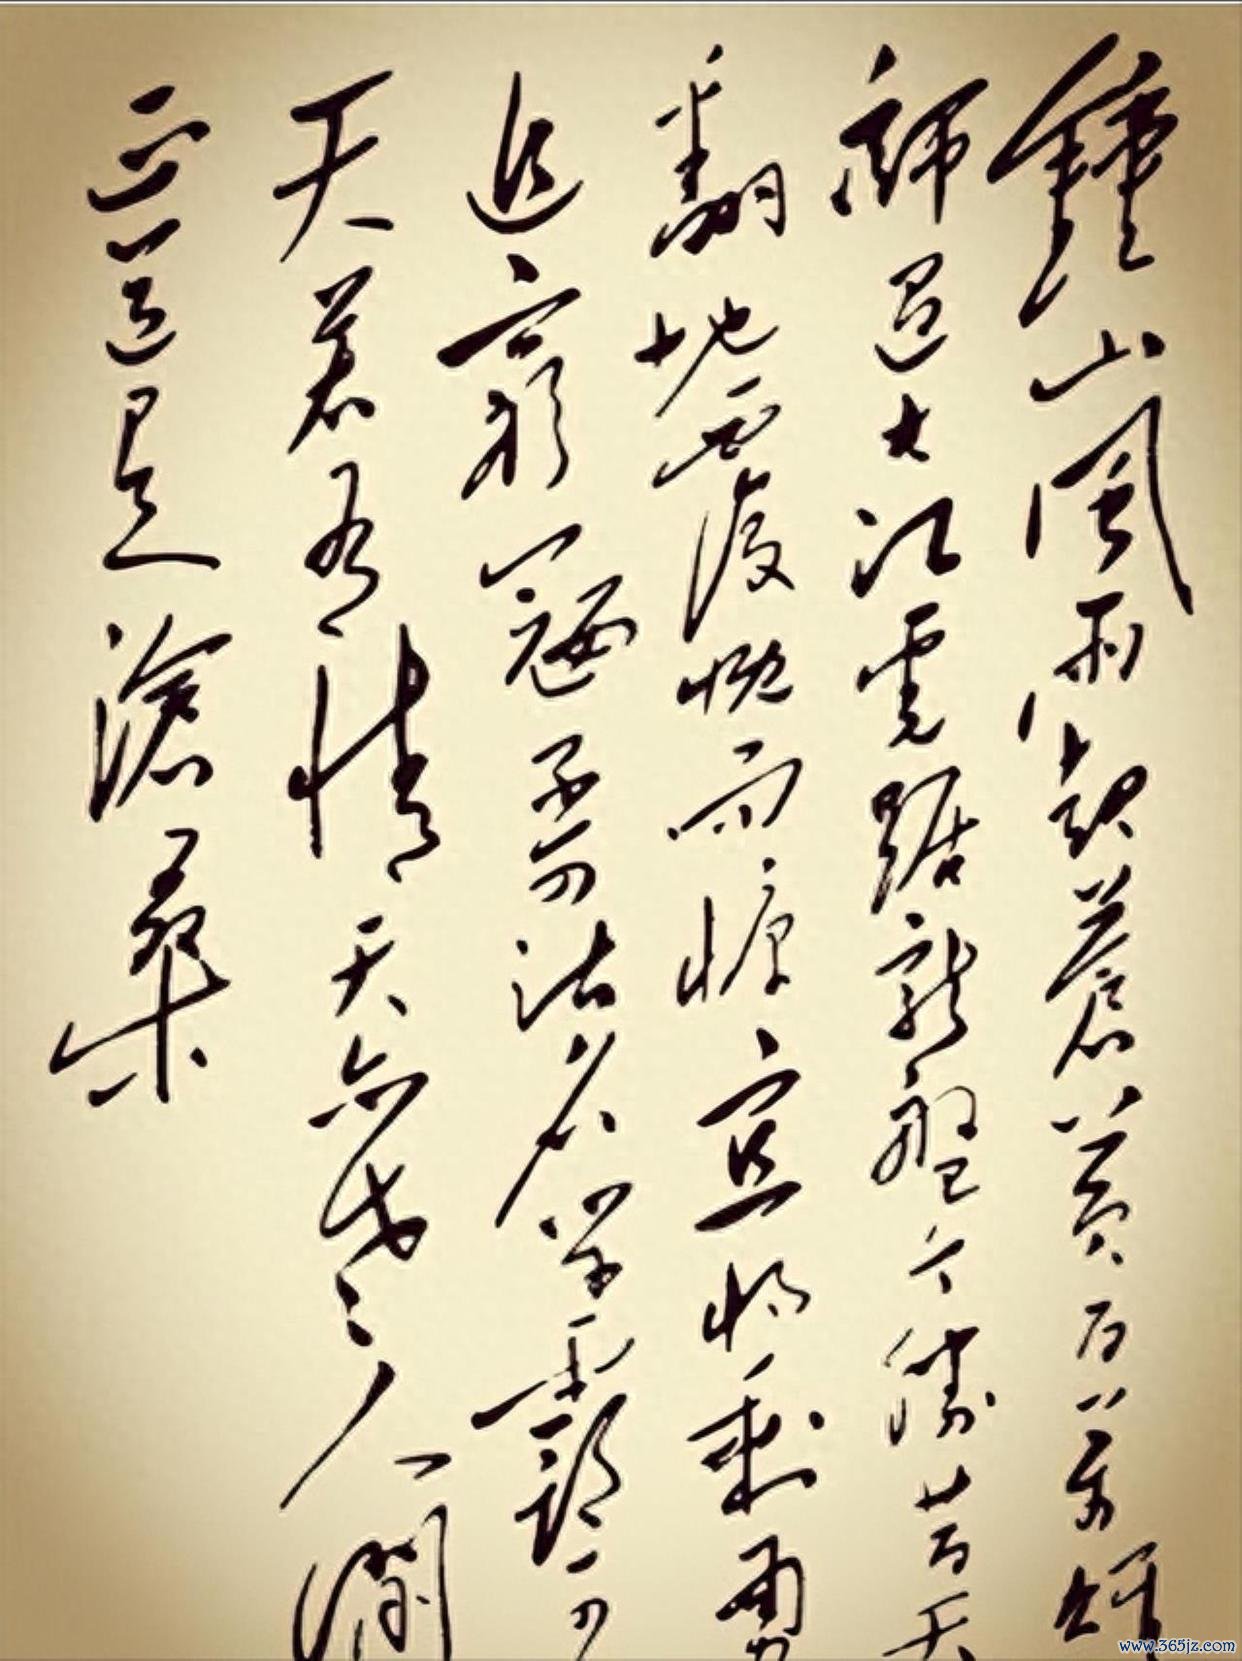 鍾山風雨起蒼黃百萬雄
師過大江虎踞龍盤今勝昔天
翻地覆慨而慷宜將剩勇
追窮寇不可沽名學霸王
天若有情天亦老人間
正道是滄桑
www.365jz.com